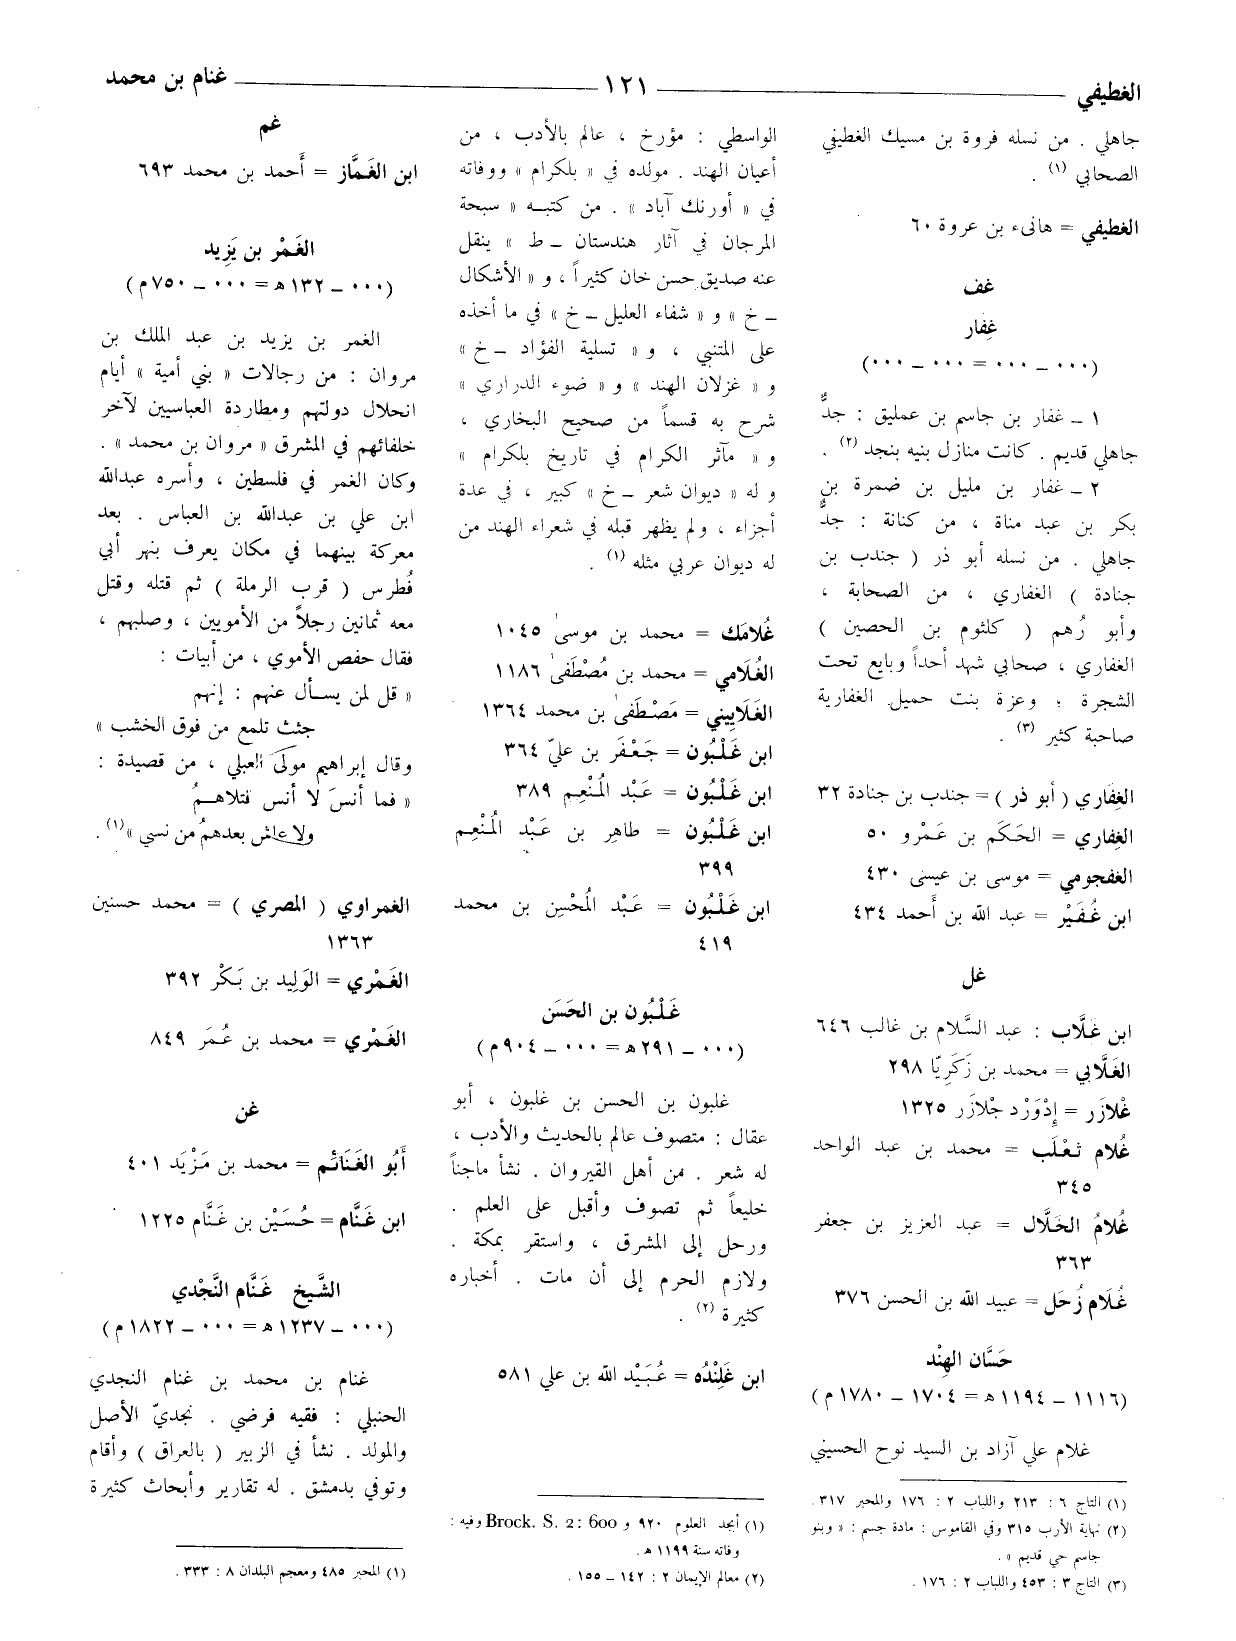 الغطيفي ١٢١ غنام بن محمد
جاهلي . من نسله فروة بن مسيك الغطيفي
الصحابي (١) .
الغطيفي = هانىء بن عروة ٦٠
غف
غِفار
(٠٠٠ ـ ٠٠٠ = ٠٠٠ ـ ٠٠٠)
١ ـ غفار بن جاسم بن عمليق : جدٌّ
جاهلي قديم . كانت منازل بنيه بنجد (٢) .
٢ ـ غفار بن مليل بن ضمرة بن
بكر بن عبد مناة ، من كنانة : جدٌّ
جاهلي . من نسله أبو ذر ( جندب بن
جنادة ) الغفاري ، من الصحابة ،
وأبو رُهم ( كلثوم بن الحصين )
الغفاري ، صحابي شهد أحداً وبايع تحت
الشجرة ؛ وعزة بنت حميل الغفارية
صاحبة كثير (٣) .
الغِفاري ( أبو ذر ) = جندب بن جنادة ٣٢
الغِفاري = الحَكَم بن عَمْرو ٥٠
الغفجومي = موسى بن عيسى ٤٣٠
ابن غُفَيْر = عبد الله بن أَحمد ٤٣٤
غل
ابن غلَّاب : عبد السَّلام بن غالب ٦٤٦
الغَلَّابي = محمد بن زَكَرِيّا ٢٩٨
غْلازَر = إدْوَرْد جْلازَر ١٣٢٥
غُلام ثَعْلَب = محمد بن عبد الواحد
٣٤٥
غُلامُ الخلَّال = عبد العزيز بن جعفر
٣٦٣
غُلَام زُحَل = عبيد الله بن الحسن ٣٧٦
حَسَّان الهِنْد
(١١١٦ ـ ١١٩٤ ه = ١٧٠٤ ـ ١٧٨٠ م)
غلام علي آزاد بن السيد نوح الحسيني
(١) التاج ٦ : ٢١٣ واللباب ٢ : ١٧٦ والمحبر ٣١٧.
(٢) نهاية الأرب ٣١٥ وفي القاموس : مادة جسم : « وبنو
جاسم حي قديم » .
(٣) التاج ٣ : ٤٥٣ واللباب ٢ : ١٧٦ .
الواسطي : مؤرخ ، عالم بالأدب ، من
أعيان الهند . مولده في « بلكرام » ووفاته
في « أورنك آباد » . من كتبه « سبحة
المرجان في آثار هندستان ـ ط » ينقل
عنه صديق حسن خان كثيراً ، و « الأشكال
ـ خ » و « شفاء العليل ـ خ » في ما أخذه
على المتنبي ، و « تسلية الفؤاد ـ خ »
و « غزلان الهند » و « ضوء الدراري »
شرح به قسماً من صحيح البخاري ،
و « مآثر الكرام في تاريخ بلكرام »
و له « ديوان شعر ـ خ » كبير ، في عدة
أجزاء ، ولم يظهر قبله في شعراء الهند من
له ديوان عربي مثله (١) .
غُلامَك = محمد بن موسىٰ ١٠٤٥
الغُلَامي = محمد بن مُصْطَفىٰ ١١٨٦
الغَلَاييني = مُصْطَفىٰ بن محمد ١٣٦٤
ابن غَلْبُون = جَعْفَر بن عليّ ٣٦٤
ابن غَلْبُون = عَبْد المُنْعِم ٣٨٩
ابن غَلْبُون = طاهِر بن عَبْد المُنْعِم
٣٩٩
ابن غَلْبُون = عَبْد المُحْسِن بن محمد
٤١٩
غَلْبُون بن الحَسَن
(٠٠٠ ـ ٢٩١ ه = ٠٠٠ ـ ٩٠٤ م)
غلبون بن الحسن بن غلبون ، أبو
عقال : متصوف عالم بالحديث والأدب ،
له شعر . من أهل القيروان . نشأ ماجناً
خليعاً ثم تصوف وأقبل على العلم .
ورحل إلى المشرق ، واستقر بمكة .
ولازم الحرم إلى أن مات . أخباره
كثيرة (٢) .
ابن غَلِنْدُه = عُبَيْد الله بن علي ٥٨١
(١) أبجد العلوم ٩٢٠ و Brock. S. 2: 600 وفيه :
وفاته سنة ١١٩٩ ه .
(٢) معالم الإيمان ٢ : ١٤٢ ـ ١٥٥ .
غم
ابن الغَمَّاز = أَحمد بن محمد ٦٩٣
الغَمْر بن يَزِيد
(٠٠٠ ـ ١٣٢ ه = ٠٠٠ ـ ٧٥٠ م)
الغمر بن يزيد بن عبد الملك بن
مروان : من رجالات « بني أمية » أيام
انحلال دولتهم ومطاردة العباسيين لآخر
خلفائهم في المشرق « مروان بن محمد » .
وكان الغمر في فلسطين ، وأسره عبدالله
ابن علي بن عبدالله بن العباس . بعد
معركة بينهما في مكان يعرف بنهر أبي
فُطرس ( قرب الرملة ) ثم قتله وقتل
معه ثمانين رجلاً من الأمويين ، وصلبهم ،
فقال حفص الأموي ، من أبيات :
« قل لمن يسأل عنهم : إنهم
جثث تلمع من فوق الخشب »
وقال إبراهيم مولى العبلي ، من قصيدة :
« فما أنسَ لا أنس قتلاهمُ
ولا عاش بعدهمُ من نسي » (١) .
الغمراوي ( المصري ) = محمد حسنين
١٣٦٣
الغَمْري = الوَلِيد بن بَكْر ٣٩٢
الغَمْري = محمد بن عُمَر ٨٤٩
غن
أَبُو الغَنَائم = محمد بن مَزْيَد ٤٠١
ابن غَنَّام = حُسَيْن بن غَنَّام ١٢٢٥
الشَّيخ غَنَّام النَّجْدي
(٠٠٠ ـ ١٢٣٧ ه = ٠٠٠ ـ ١٨٢٢ م)
غنام بن محمد بن غنام النجدي
الحنبلي : فقيه فرضي . نجديّ الأصل
والمولد . نشأ في الزبير ( بالعراق ) وأقام
وتوفي بدمشق . له تقارير وأبحاث كثيرة
(١) المحبر ٤٨٥ ومعجم البلدان ٨ : ٣٣٣ .